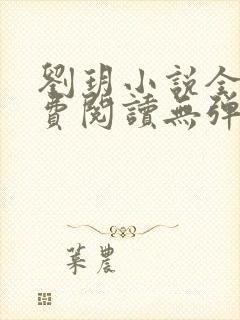 劉玥小説全
費閱讀無彈
葉農